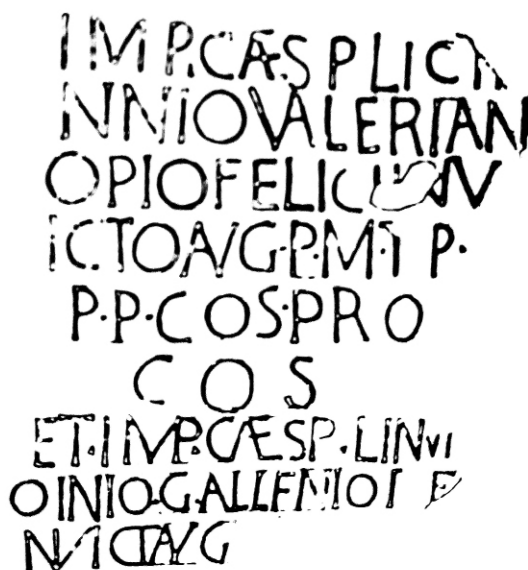 IMP.CAES PLICI
NNIOVALERIAN
OPIOFELICI INV
ICTOAVG·P·M·T P·
P·P·COS·PRO
COS
ET·IMP·CAESP·LINVI
OINIO·GALLFNIO
NVICTAVG